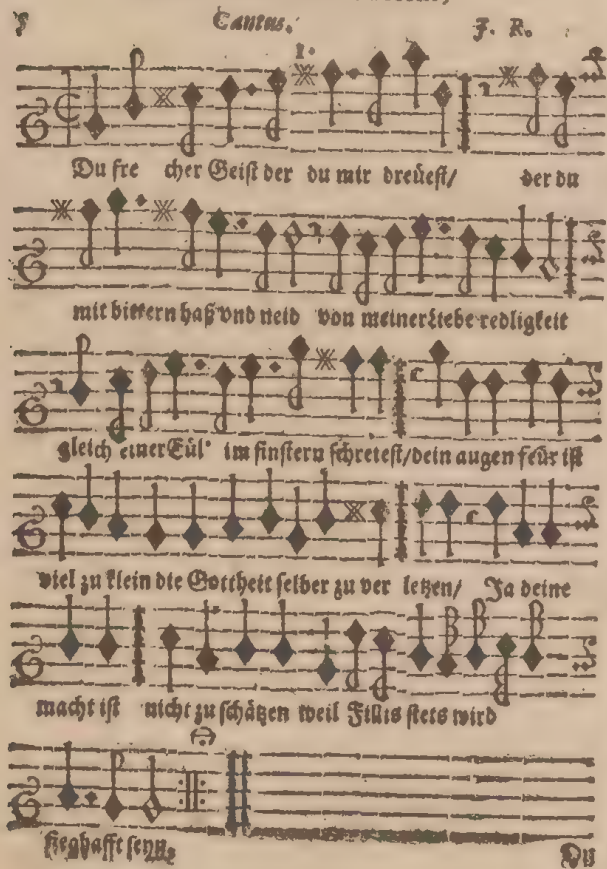 Cantus.
F. R.
1.
Du fre cher Geiſt der du mir dreüeſt/ der du
mit bittern haß vnd neid von meiner Liebe redligkeit
gleich einer Eül' im finſtern ſchreieſt/ dein augen feür iſt
viel zu klein die Gottheit ſelber zu ver letzen/ Ja deine
macht iſt nicht zu ſchätzen weil Filis ſtets wird
ſieghafft ſeyn.
Du